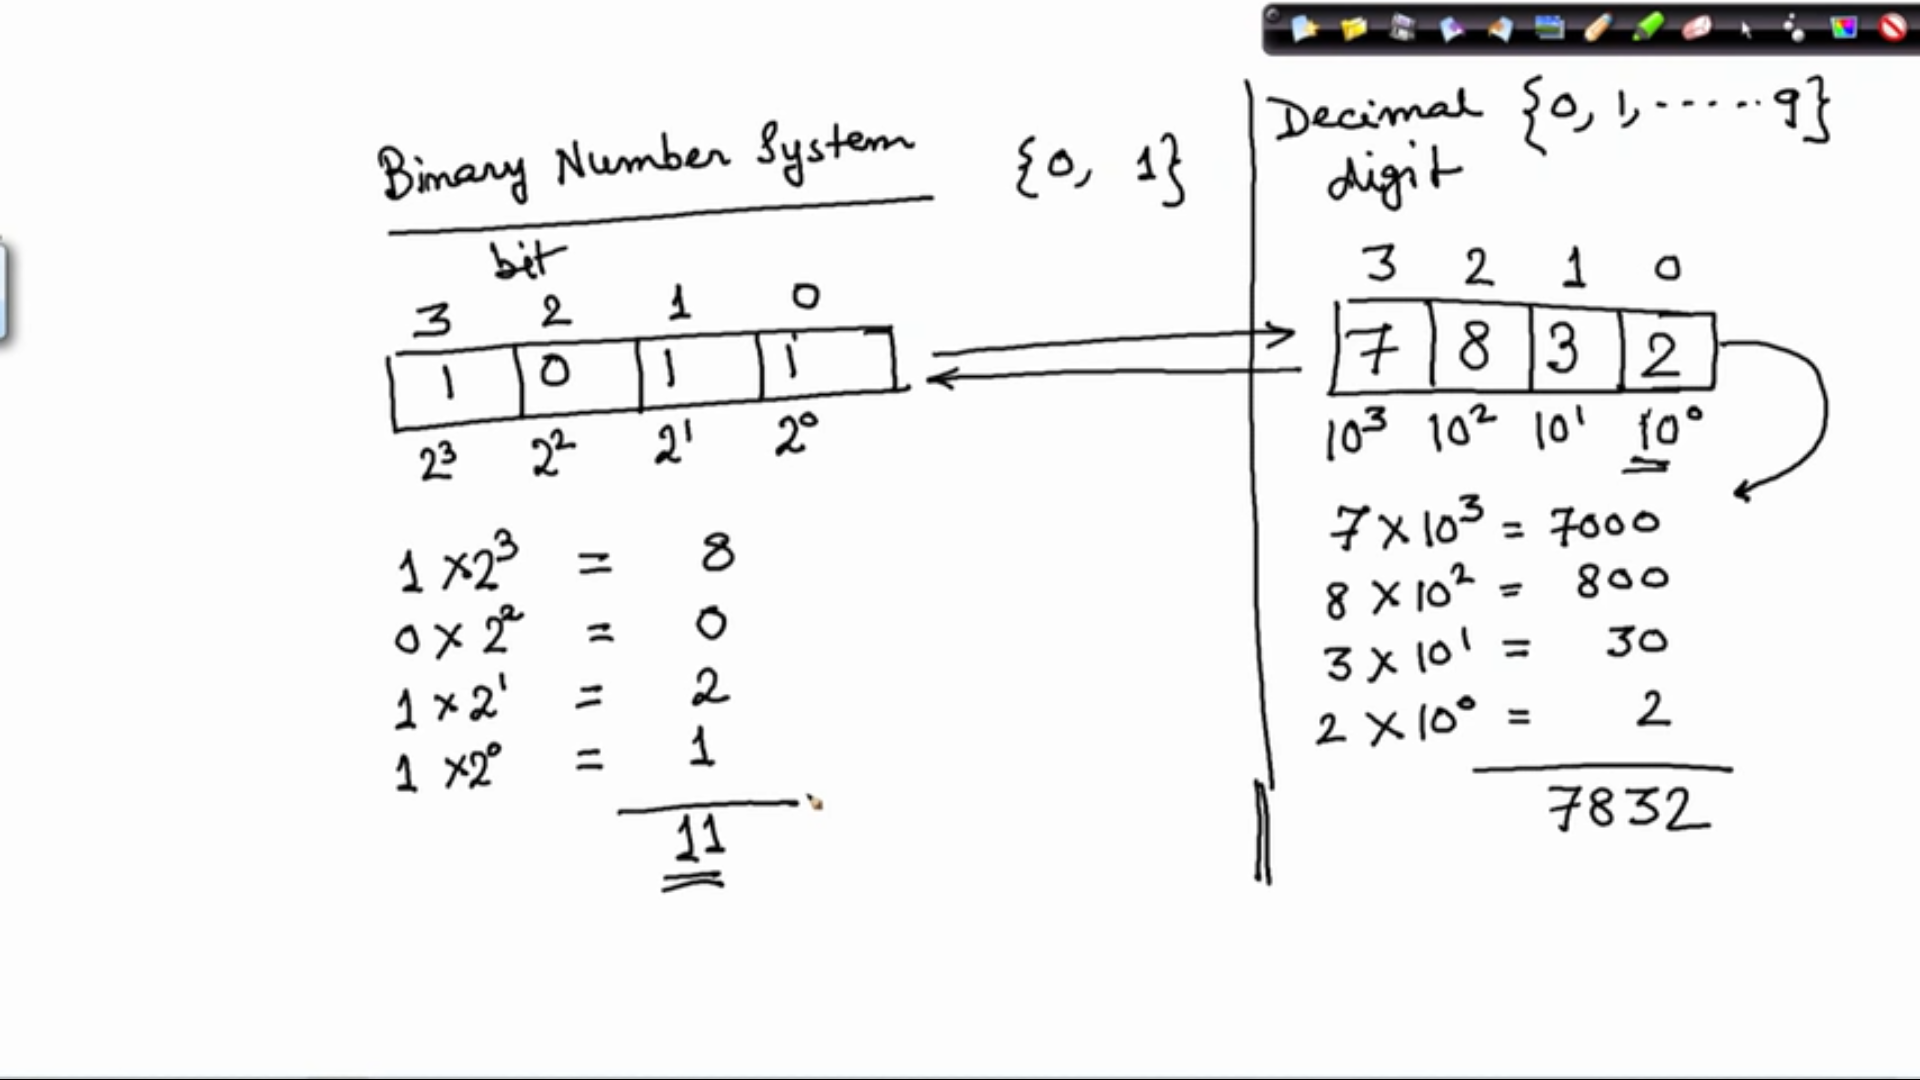 Binary Number System {0, 1}
bit
3 2 1 0
1 0 1 1
2³ 2² 2¹ 2⁰
1 × 2³ = 8
0 × 2² = 0
1 × 2¹ = 2
1 × 2⁰ = 1
11
Decimal {0, 1, ...... 9}
digit
3 2 1 0
7 8 3 2
10³ 10² 10¹ 10⁰
7 × 10³ = 7000
8 × 10² = 800
3 × 10¹ = 30
2 × 10⁰ = 2
7832